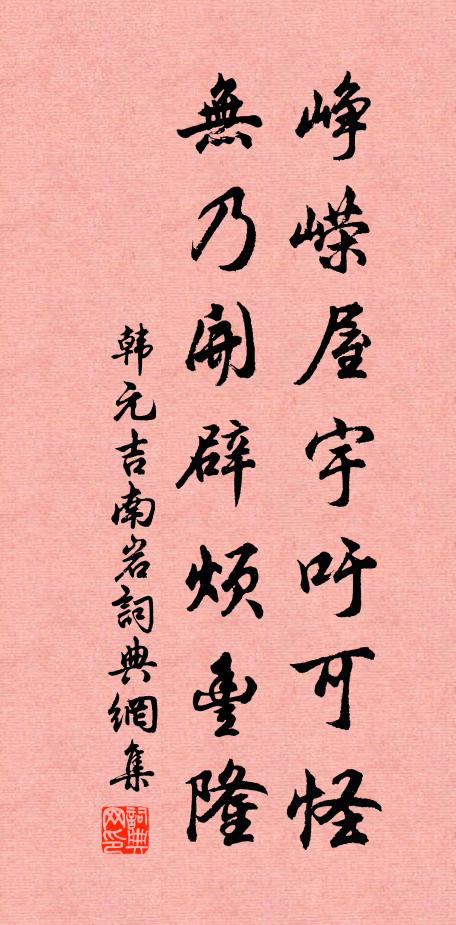 峥嵘屋宇吁可怪
無乃開辟烦豊隆
韩元吉南岩詞典網集
詞典网印